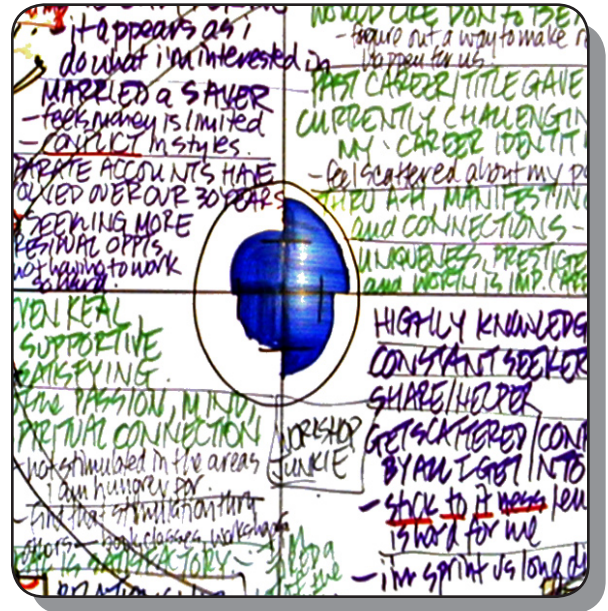 it appears as i
do what i'm interested in
MARRIED a SAVER
- feels money is limited
- CONFLICT in styles.
PARATE ACCOUNTS HAVE
OVER OUR 30 YEARS
SEEKING MORE
RESIDUAL OPPTS.
not having to work
so hard.
VEN KEAL
SUPPORTIVE
SATISFYING.
the PASSION, MIND,
PIRITUAL CONNECTION
- not stimulated in the areas
i am hungrey for.
- find that stimulation thru
others - book, classes, workshops
IS SATISFACTORY -
WOULD LIKE DON to BE
- figure out a way to make
happen for us.
PAST CAREER/TITLE GAVE
CURRENTLY CHALLENGIN
MY CAREER IDENTIT
- feel scattered about my
THRU A+H, MANIFESTING
and CONNECTIONS -
UNIQUENESS, PRESTIGE
and WORTH IS IMP.
HIGHLY KNOWLEDG
CONSTANT SEEKER
SHARE/HELPER
GET SCATTERED/CON
BY ALL I GET INTO
- stick to it ness
is hard for me
- i'm sprint vs long d
WORKSHOP
JUNKIE